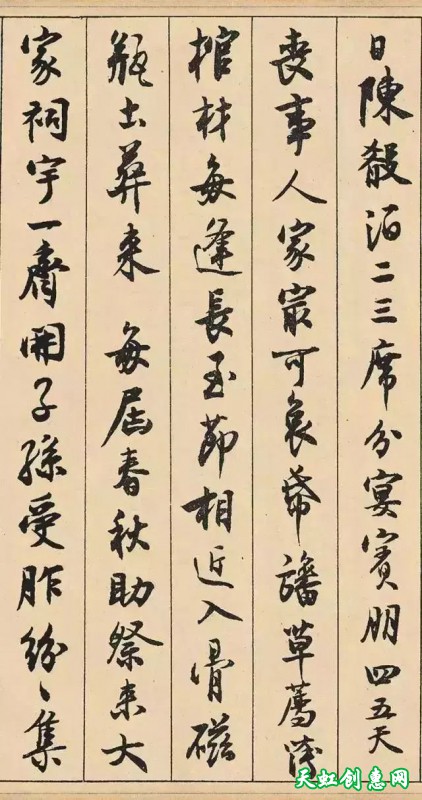 日陳殽酒二三席分宴賓朋四五天
喪事人家冣可哀帋旛草薦
棺材每逢長至節相近入骨磁
瓶土葬來 每屆春秋助祭來大
家祠宇一齊開子孫受胙紛〻集
天虹创惠网